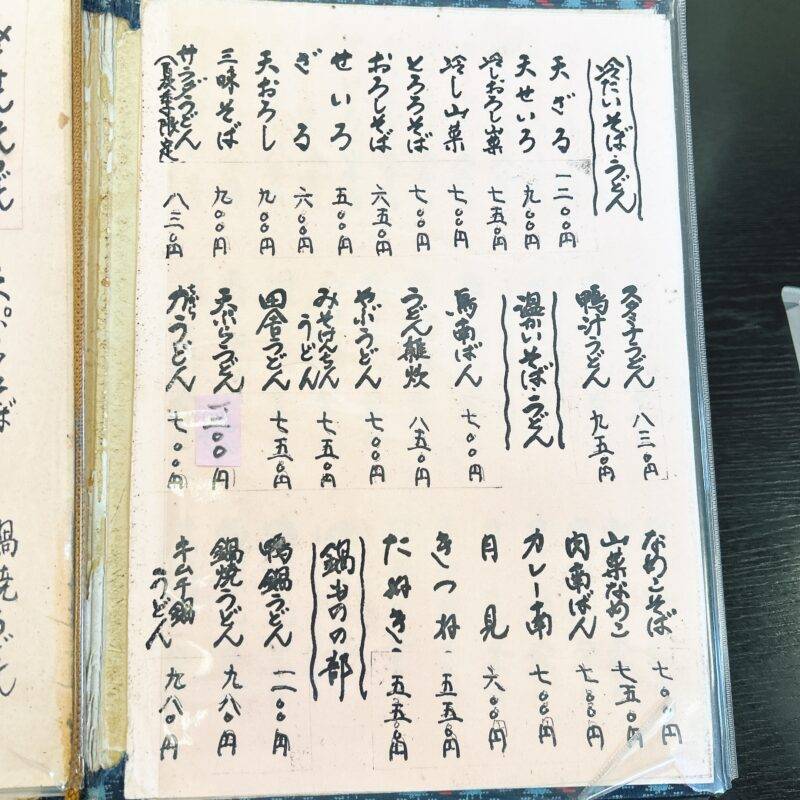 冷たいそばうどん
天ざる 一二〇〇円
天せいろ 九〇〇円
冷しおろし山菜 七五〇円
冷し山菜 七〇〇円
とろろそば 七〇〇円
おろしそば 六五〇円
せいろ 五〇〇円
ざる 六〇〇円
天おろし 九〇〇円
三味そば 九〇〇円
サラダうどん(夏季限定) 八三〇円
スタミナうどん 八三〇円
鴨汁うどん 九五〇円
温かいそばうどん
鳥南ばん 七〇〇円
うどん雑炊 八五〇円
やぶうどん 七〇〇円
みそけんちんうどん 七五〇円
田舎うどん 七五〇円
天ぷらうどん 一二〇〇円
力うどん 七〇〇円
なめこそば 七〇〇円
山菜なめこ 七五〇円
肉南ばん 七〇〇円
カレー南 七〇〇円
月見 六〇〇円
きつね 五五〇円
たぬき 五五〇円
鍋ものの部
鴨鍋うどん 一二〇〇円
鍋焼うどん 九八〇円
キムチ鍋うどん 九八〇円
天ぷらそば
鍋焼うどん